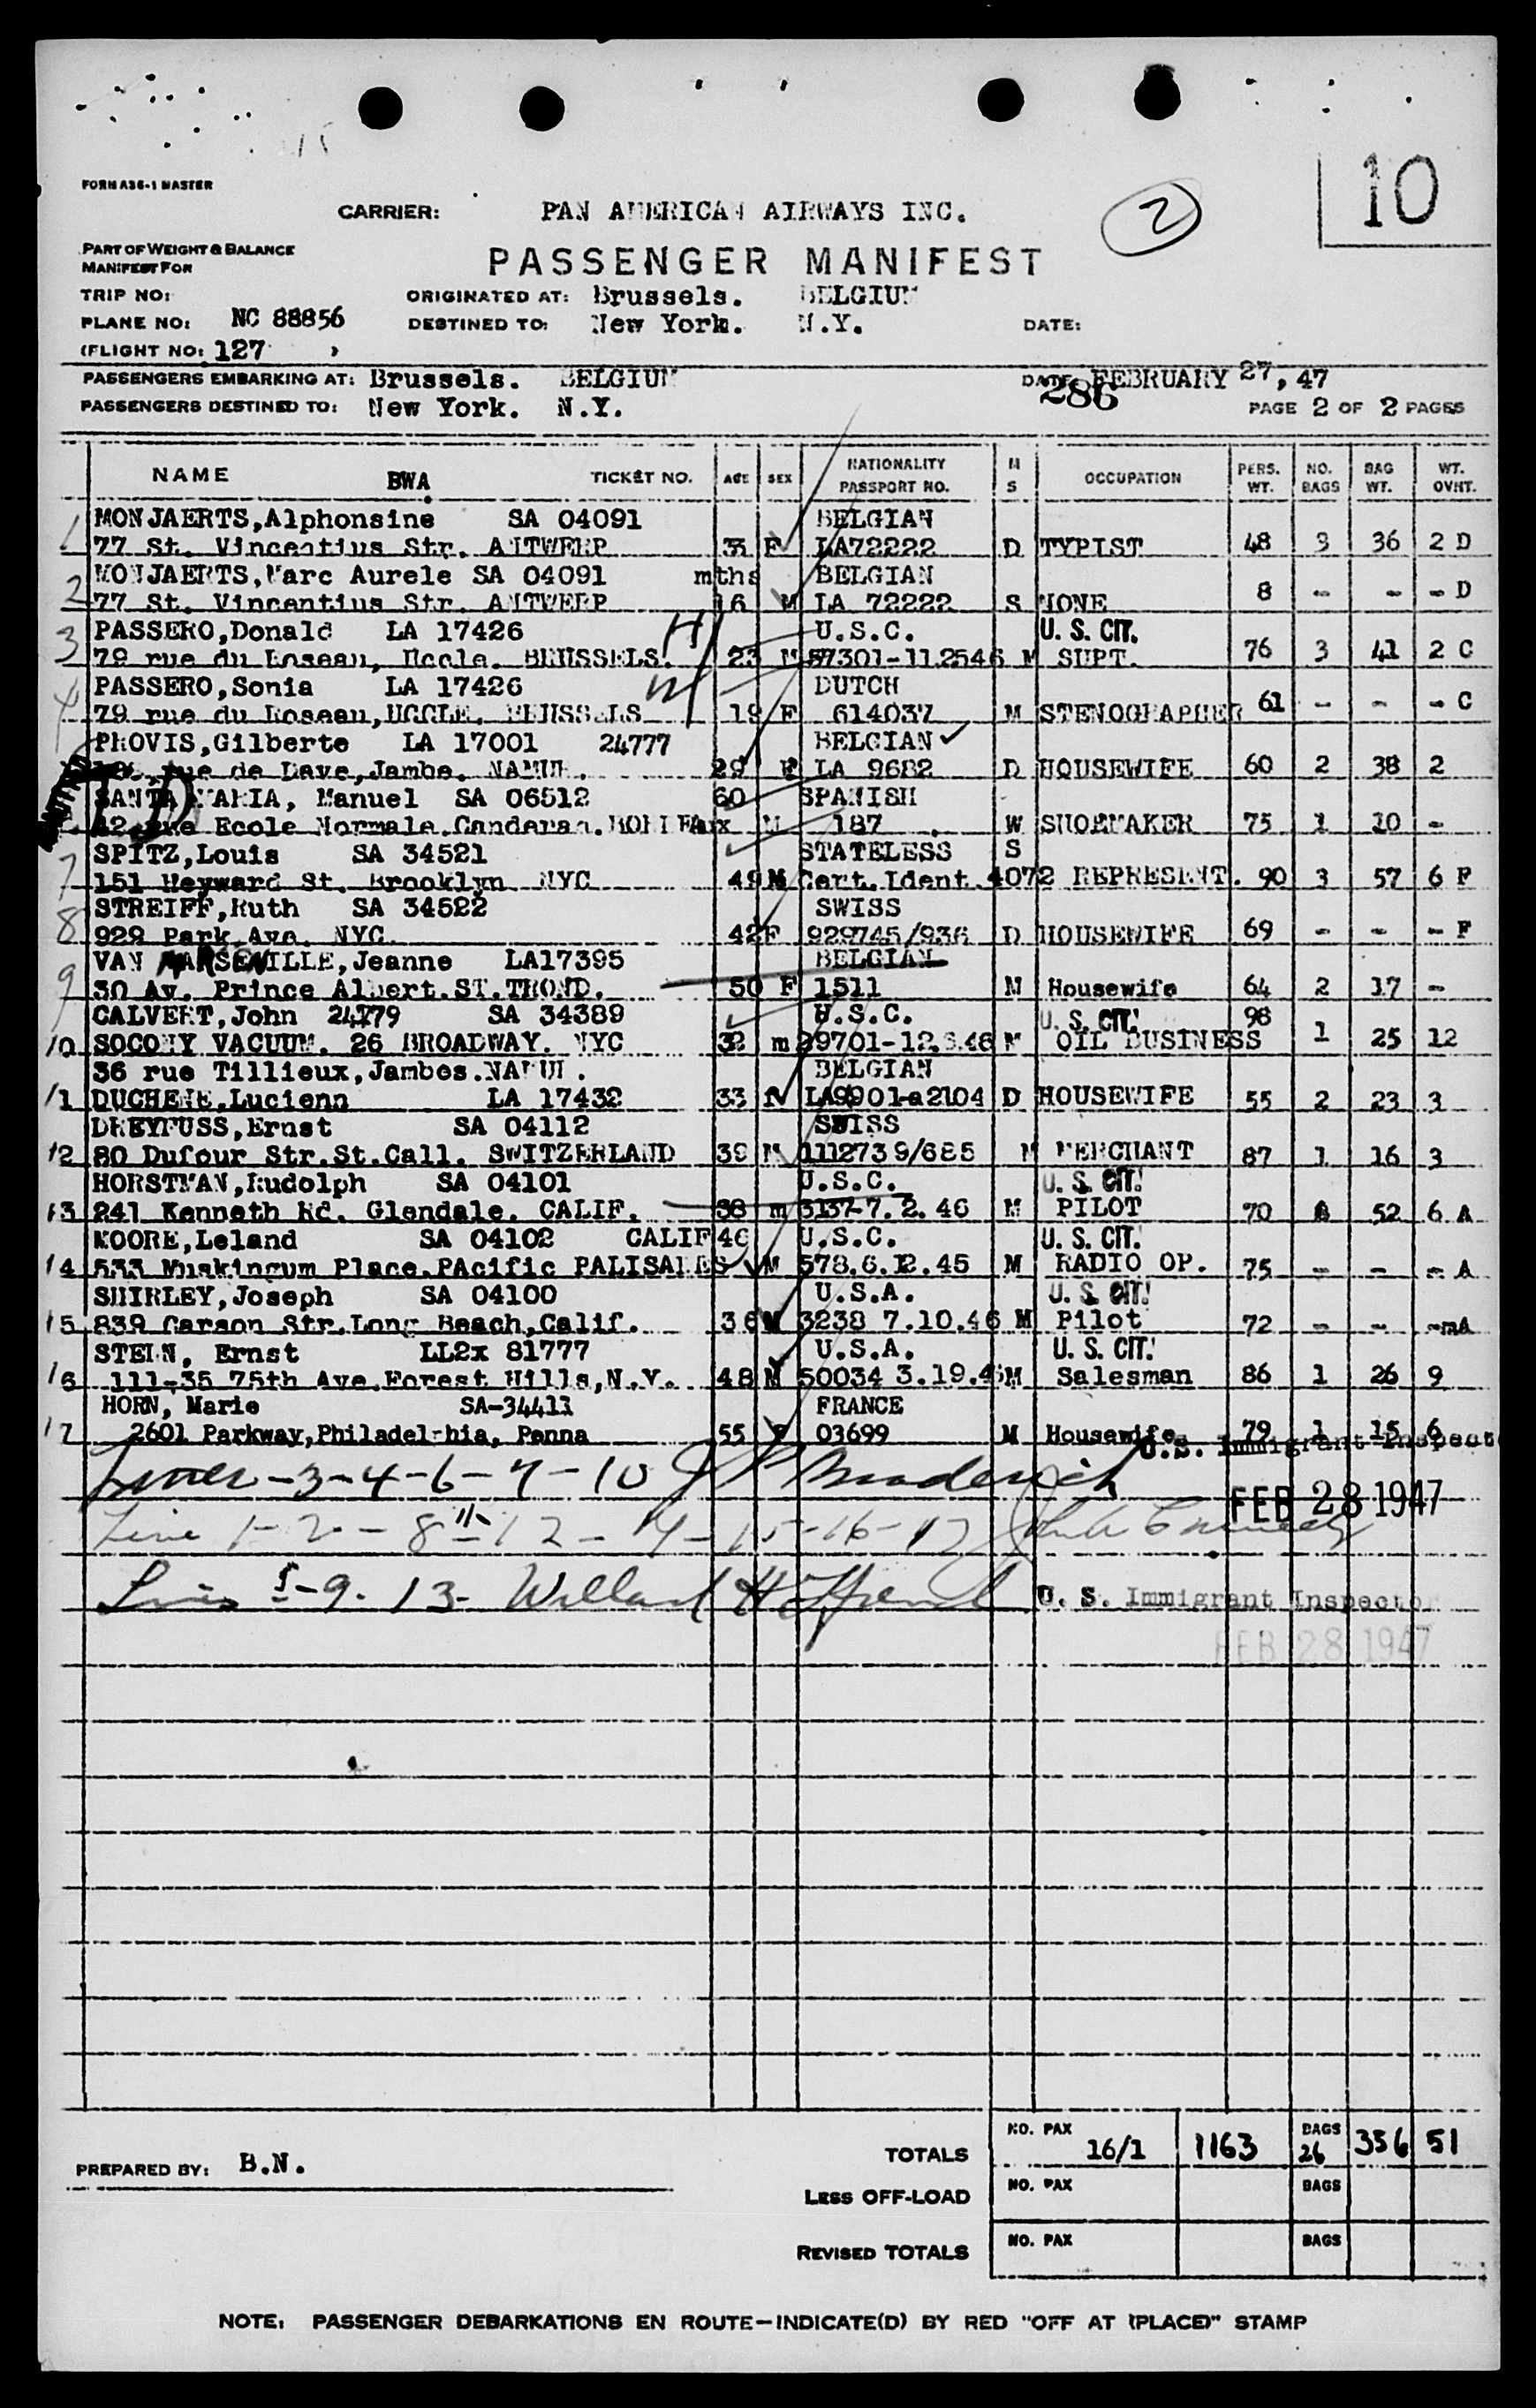 10
2
FORM A36-1 MASTER
CARRIER: PAN AMERICAN AIRWAYS INC.
PART OF WEIGHT & BALANCE
MANIFEST FOR
PASSENGER MANIFEST
TRIP NO:
ORIGINATED AT: Brussels. BELGIUM
PLANE NO: NC 88856
DESTINED TO: New York. N.Y.
DATE:
(FLIGHT NO: 127 )
PASSENGERS EMBARKING AT: Brussels. BELGIUM
DATE FEBRUARY 27, 47
286
PASSENGERS DESTINED TO: New York. N.Y.
PAGE 2 OF 2 PAGES
NAME BWA TICKET NO. AGE SEX NATIONALITY PASSPORT NO. M S OCCUPATION PERS. WT. NO. BAGS BAG WT. WT. OVHT.
MONJAERTS,Alphonsine SA 04091 BELGIAN
1 77 St. Vincentius Str. ANTWERP 33 F LA72222 D TYPIST 48 3 36 2 D
MONJAERTS,Marc Aurele SA 04091 mths BELGIAN
2 77 St. Vincentius Str. ANTWERP 16 M LA 72222 S NONE 8 - - - D
PASSERO,Donald LA 17426 U.S.C. U. S. CIT.
3 79 rue du Roseau, Uccle. BRUSSELS. 23 M 57301-112546 M SUPT. 76 3 41 2 C
PASSERO,Sonia LA 17426 DUTCH
4 79 rue du Roseau,UCCLE. BRUSSELS 19 F 614037 M STENOGRAPHER 61 - - - C
PROVIS,Gilberte LA 17001 24777 BELGIAN
rue de Dave,Jambe. NAMUR. 29 F LA 9682 D HOUSEWIFE 60 2 38 2
SANTA MARIA, Manuel SA 06512 60 SPANISH
42 rue Ecole Normale.Canderan. M 187 W SHOEMAKER 75 1 10 -
SPITZ,Louis SA 34521 STATELESS S
7 151 Heyward St. Brooklyn NYC 49 M Cert.Ident 4072 REPRESENT. 90 3 57 6 F
STREIFF,Ruth SA 34522 SWISS
8 929 Park Ave. NYC 42 F 929745/936 D HOUSEWIFE 69 - - - F
VAN MARSENILLE,Jeanne LA17395 BELGIAN
9 30 Av. Prince Albert.ST.TROND. 50 F 1511 M Housewife 64 2 17 -
CALVERT,John 24779 SA 34389 U.S.C. U. S. CIT. 98
10 SOCONY VACUUM. 26 BROADWAY. NYC 32 m 29701-12.3.46 M OIL BUSINESS 1 25 12
36 rue Tillieux,Jambes.NAMUR. BELGIAN
11 DUCHENE,Lucienn LA 17432 33 LA9901-a2104 D HOUSEWIFE 55 2 23 3
DREYFUSS,Ernst SA 04112 SWISS
12 80 Dufour Str.St.Gall. SWITZERLAND 39 M 1112739/685 M MERCHANT 87 1 16 3
HORSTMAN,Rudolph SA 04101 U.S.C. U. S. CIT.
13 241 Kenneth Rd. Glendale. CALIF. 38 m 3137-7.2.46 M PILOT 70 8 52 6 A
MOORE,Leland SA 04102 CALIF 46 U.S.C. U. S. CIT.
14 533 Muskingum Place.PAcific PALISADES M 578.6.12.45 M RADIO OP. 75 - - - A
SHIRLEY,Joseph SA 04100 U.S.A. U. S. CIT.
15 839 Carson Str.Long Beach,Calif. 36 M 3238 7.10.46 M Pilot 72 - - -mA
STEIN, Ernst LL2x 81777 U.S.A. U. S. CIT.
16 111-35 75th Ave.Forest Hills,N.Y. 48 M 50034 3.19.46 M Salesman 86 1 26 9
HORN, Marie SA-34411 FRANCE
17 2601 Parkway,Philadelphia, Penna 55 F 03699 M Housewife 79 1 15 6
U.S. Immigrant Inspector
Lines -3-4-6-7-10 J P Broderick
FEB 28 1947
Line 1-2-8-11-12-14-15-16-17
Lines 5-9-13- Willard H
U. S. Immigrant Inspector
FEB 28 1947
TOTALS NO. PAX 16/1 1163 BAGS 26 356 51
PREPARED BY: B.N.
LESS OFF-LOAD NO. PAX BAGS
REVISED TOTALS NO. PAX BAGS
NOTE: PASSENGER DEBARKATIONS EN ROUTE—INDICATE(D) BY RED "OFF AT (PLACE)" STAMP